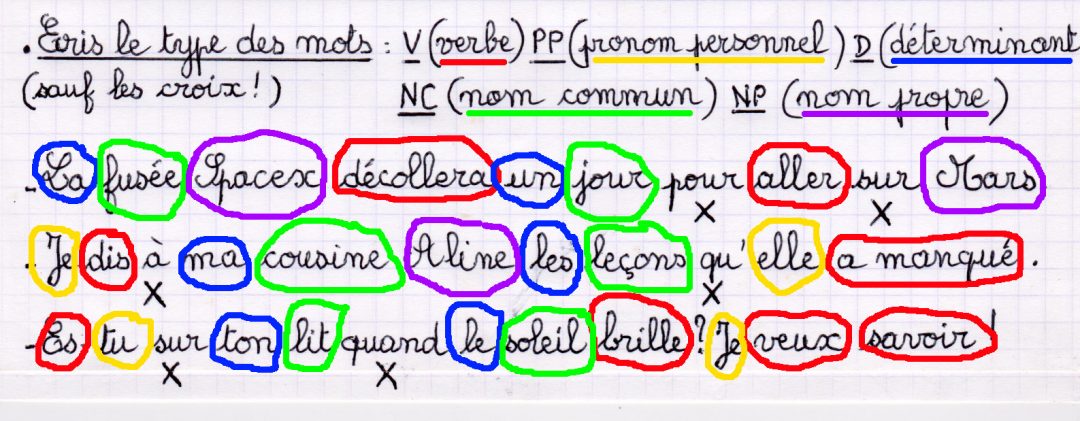 . Ecris le type des mots : V (verbe) PP (pronom personnel) D (déterminant
(sauf les croix !) NC (nom commun) NP (nom propre)
- La fusée Spacex décollera un jour pour aller sur Mars
X X
. Je dis à ma cousine Aline les leçons qu'elle a manqué.
X X
- Es tu sur ton lit quand le soleil brille ? Je veux savoir !
X X